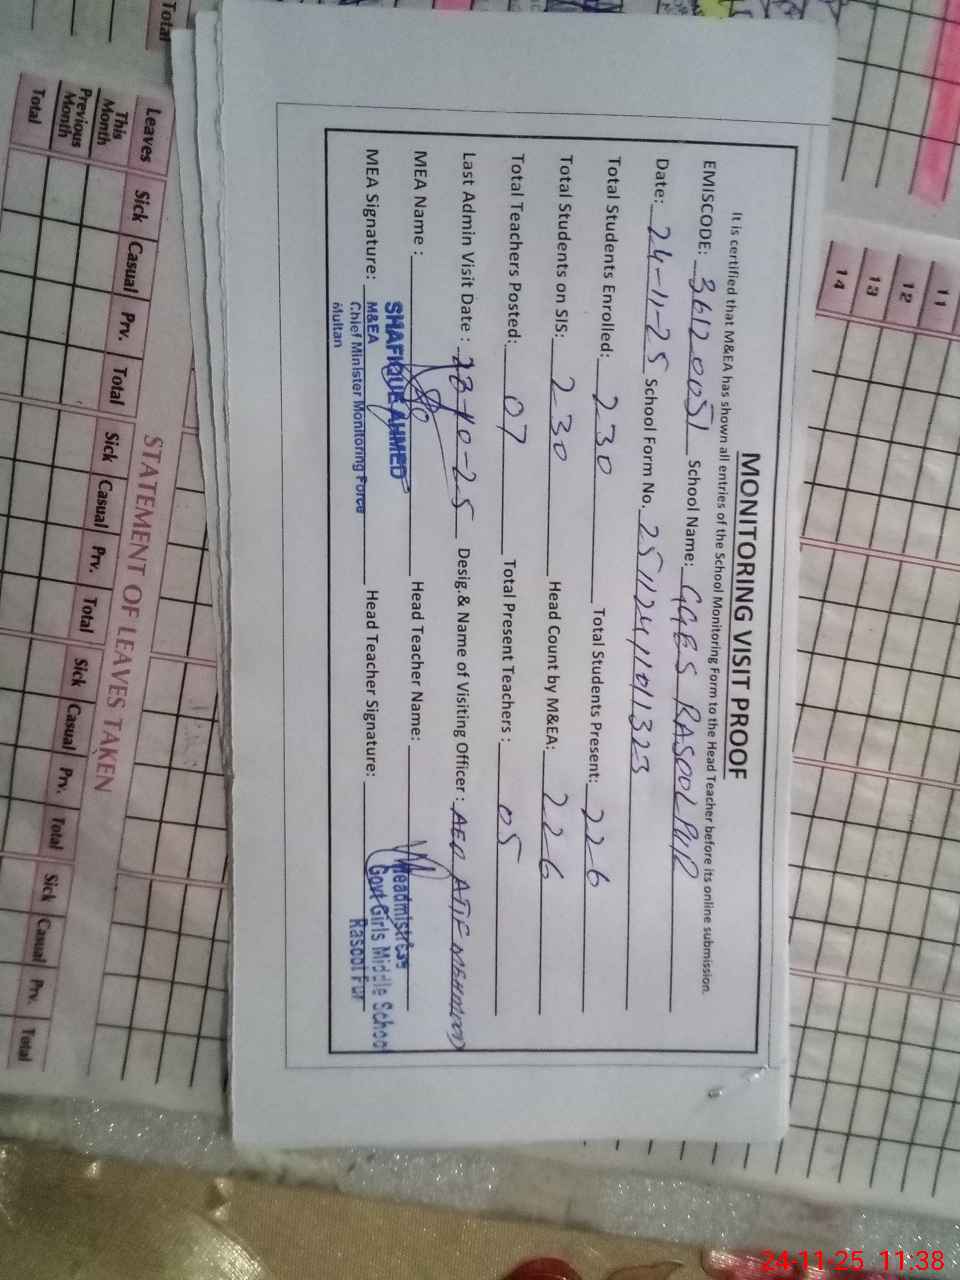 MONITORING VISIT PROOF
It is certified that M&EA has shown all entries of the School Monitoring Form to the Head Teacher before its online submission.
EMISCODE: 36120051 School Name: GGES RASOOLPUR
Date: 24-11-25 School Form No. 2511241101323
Total Students Enrolled: 230 Total Students Present: 226
Total Students on SIS: 230 Head Count by M&EA: 226
Total Teachers Posted: 07 Total Present Teachers : 05
Last Admin Visit Date : 23-10-25 Desig.& Name of Visiting Officer : AEO ATIF MEHMOOD
MEA Name : Head Teacher Name:
MEA Signature: Head Teacher Signature:
SHAFIQUE AHMED
M&EA
Chief Minister Monitoring Force
Multan
Headmistress
Govt Girls Middle School
Rasool Pur
STATEMENT OF LEAVES TAKEN
Leaves Sick Casual Prv. Total Sick Casual Prv. Total Sick Casual Prv. Total Sick Casual Prv. Total
This Month
Previous Month
Total
Total
11
12
13
14
24-11-25 11:38